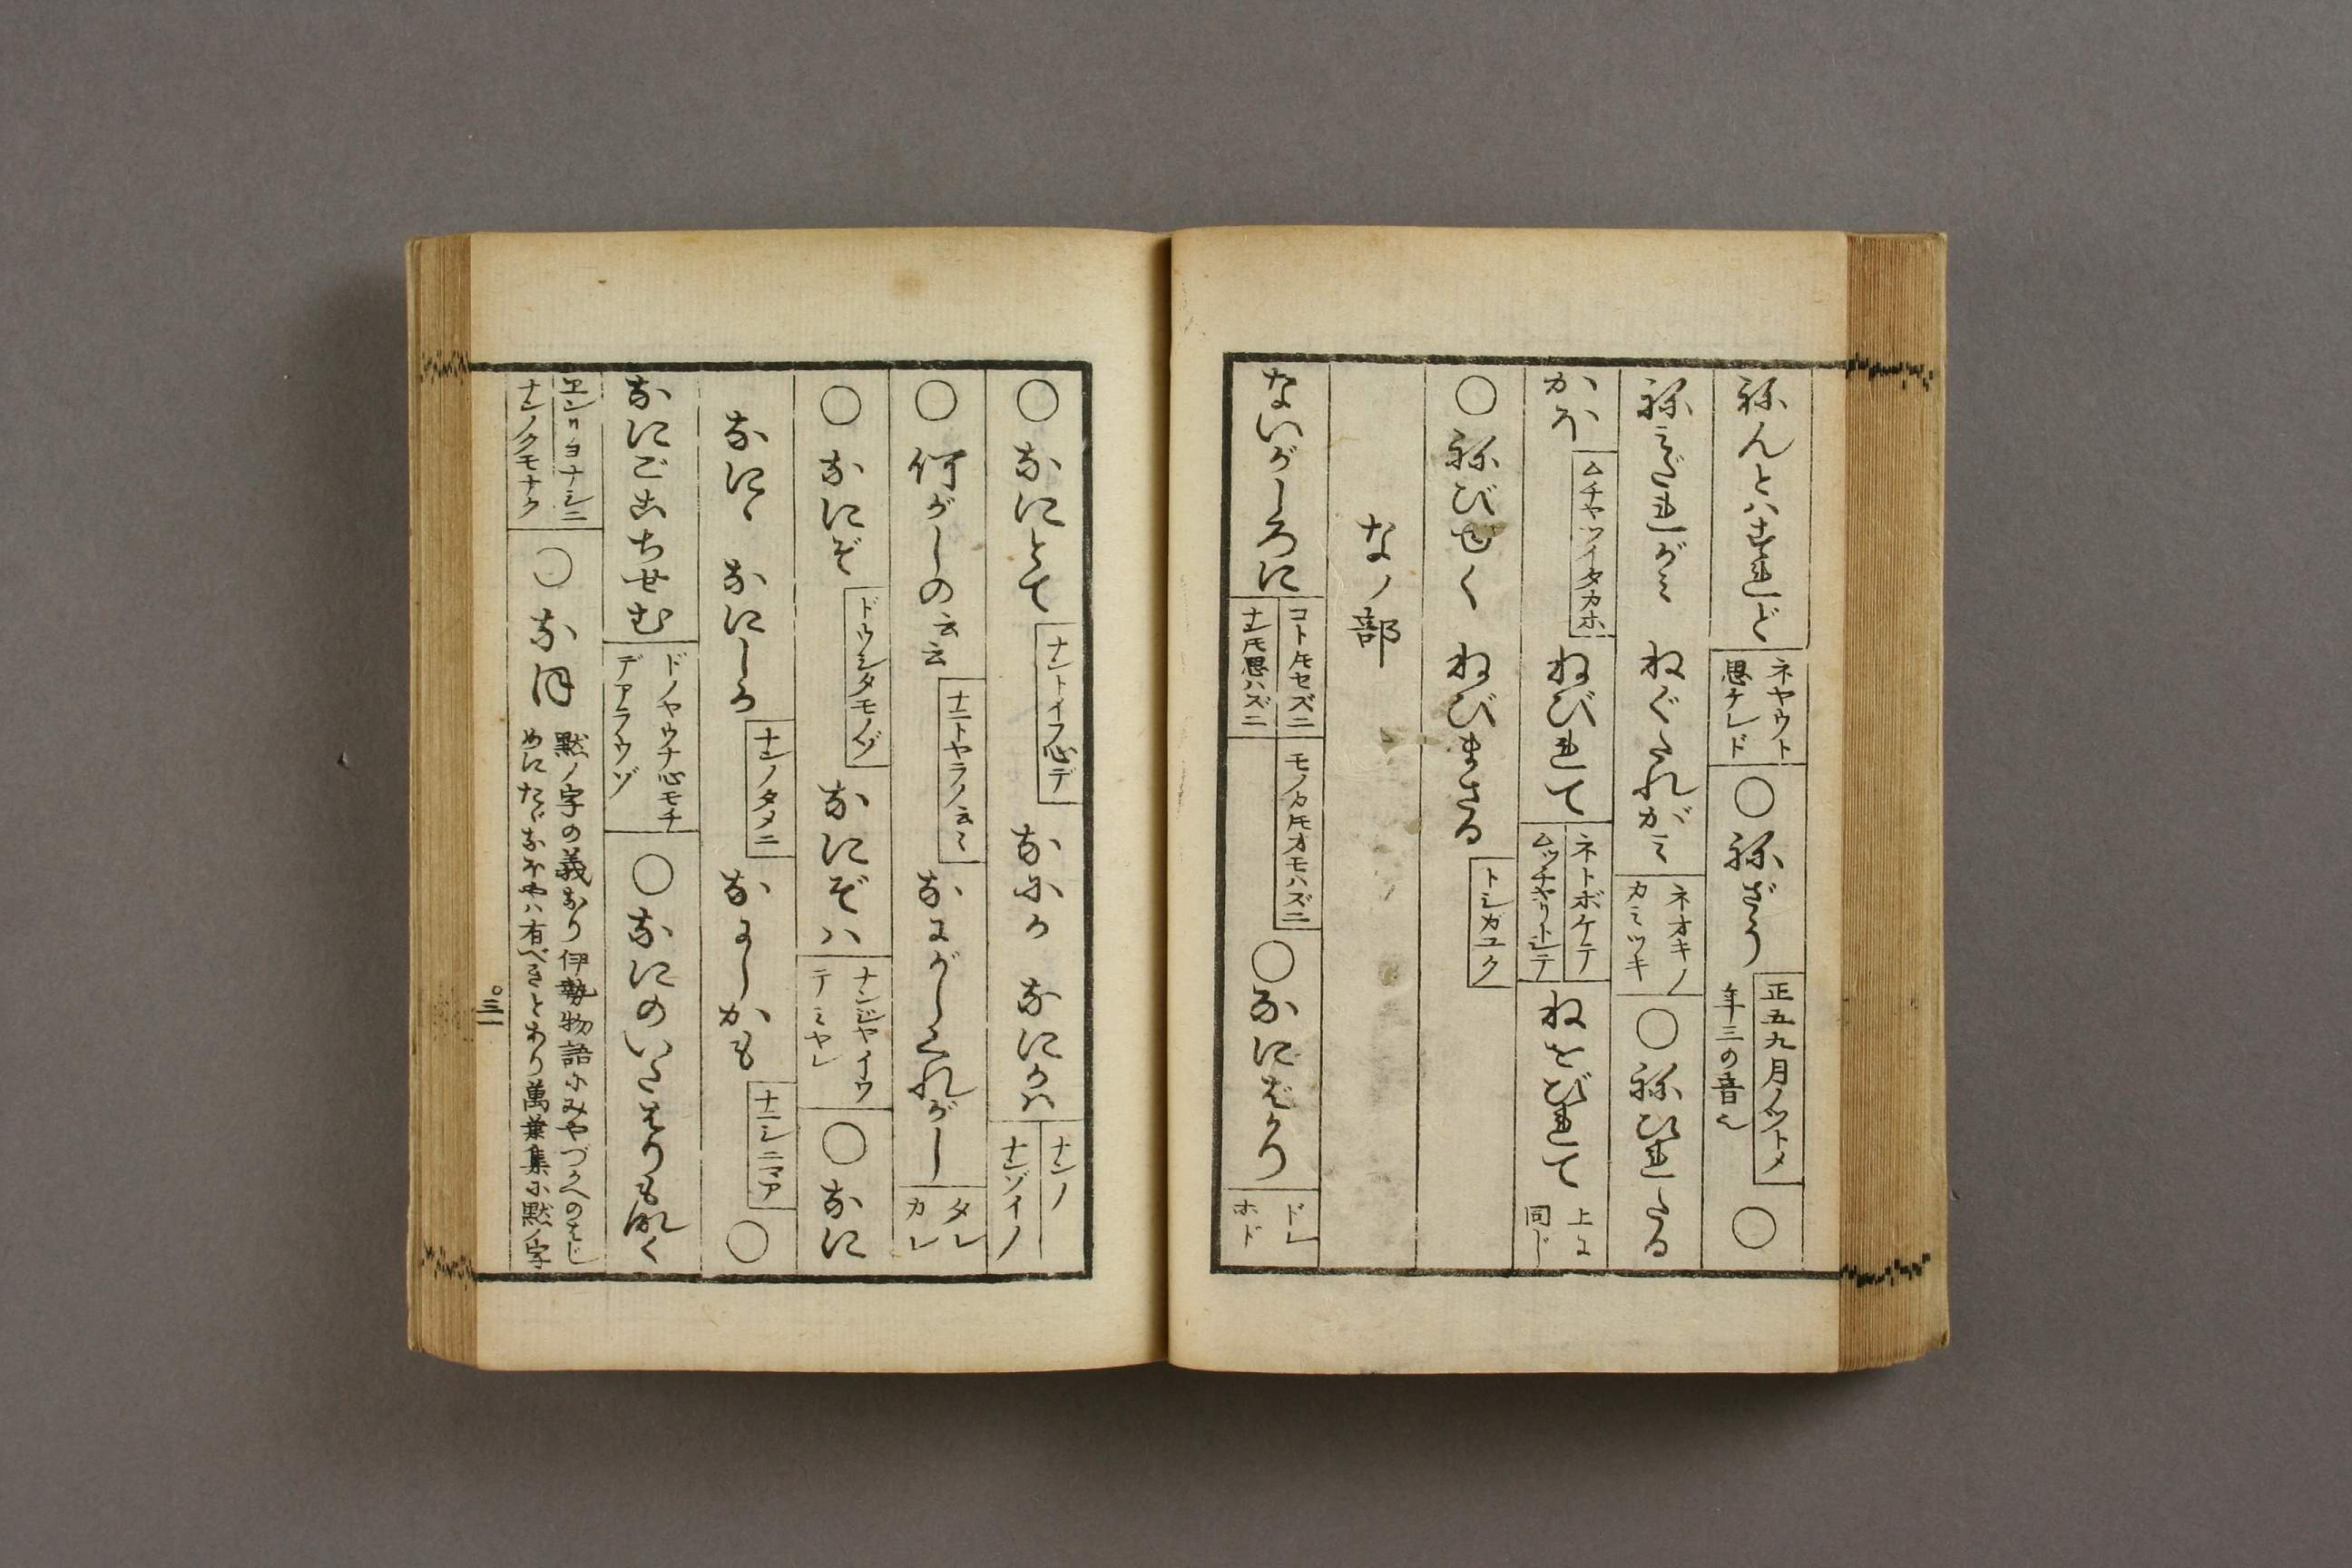 ねんとハすれど ネヤウト
思ケレド ○ねざう 正五九月ノツトメ
年三の音也 ○
ねみだれがみ ねぐたれがミ ネオキノ
カミツキ ○ねびれたる
かほ ムチヤツイタカホ ねびれて ネトボケテ
ムツチヤリトシテ ねをびれて 上に
同じ
○ねびゆく ねびまさる トシガユク
なノ部
ないがしろに コトトモセズニ
ナントモ思ハズニ モノカトモオモハズニ ○なにばかり ドレ
ホド
○なにとて ナントイフ心デ なにか なにかハ ナンノ
ナンゾイノ
○何がしの云云 ナニトヤラノ云々 なにがしくれがし タレ
カレ
○なにぞ ドウシタモノゾ なにぞハ ナンジヤイウ
テミヤレ ○なに
なにゝ なにしか ナンノタメニ なにしかも ナニシニマア ○
なにごこちせむ ドノヤウナ心モチ
デアラウゾ ○なにのいたはりもなく
ヱンリヨナシニ
ナンノクモナク ○なほ 黙ノ字の義なり伊勢物語にみやづかへのはじ
めにたゞなほやハ有べきとあり萬葉集に黙ノ字
三一